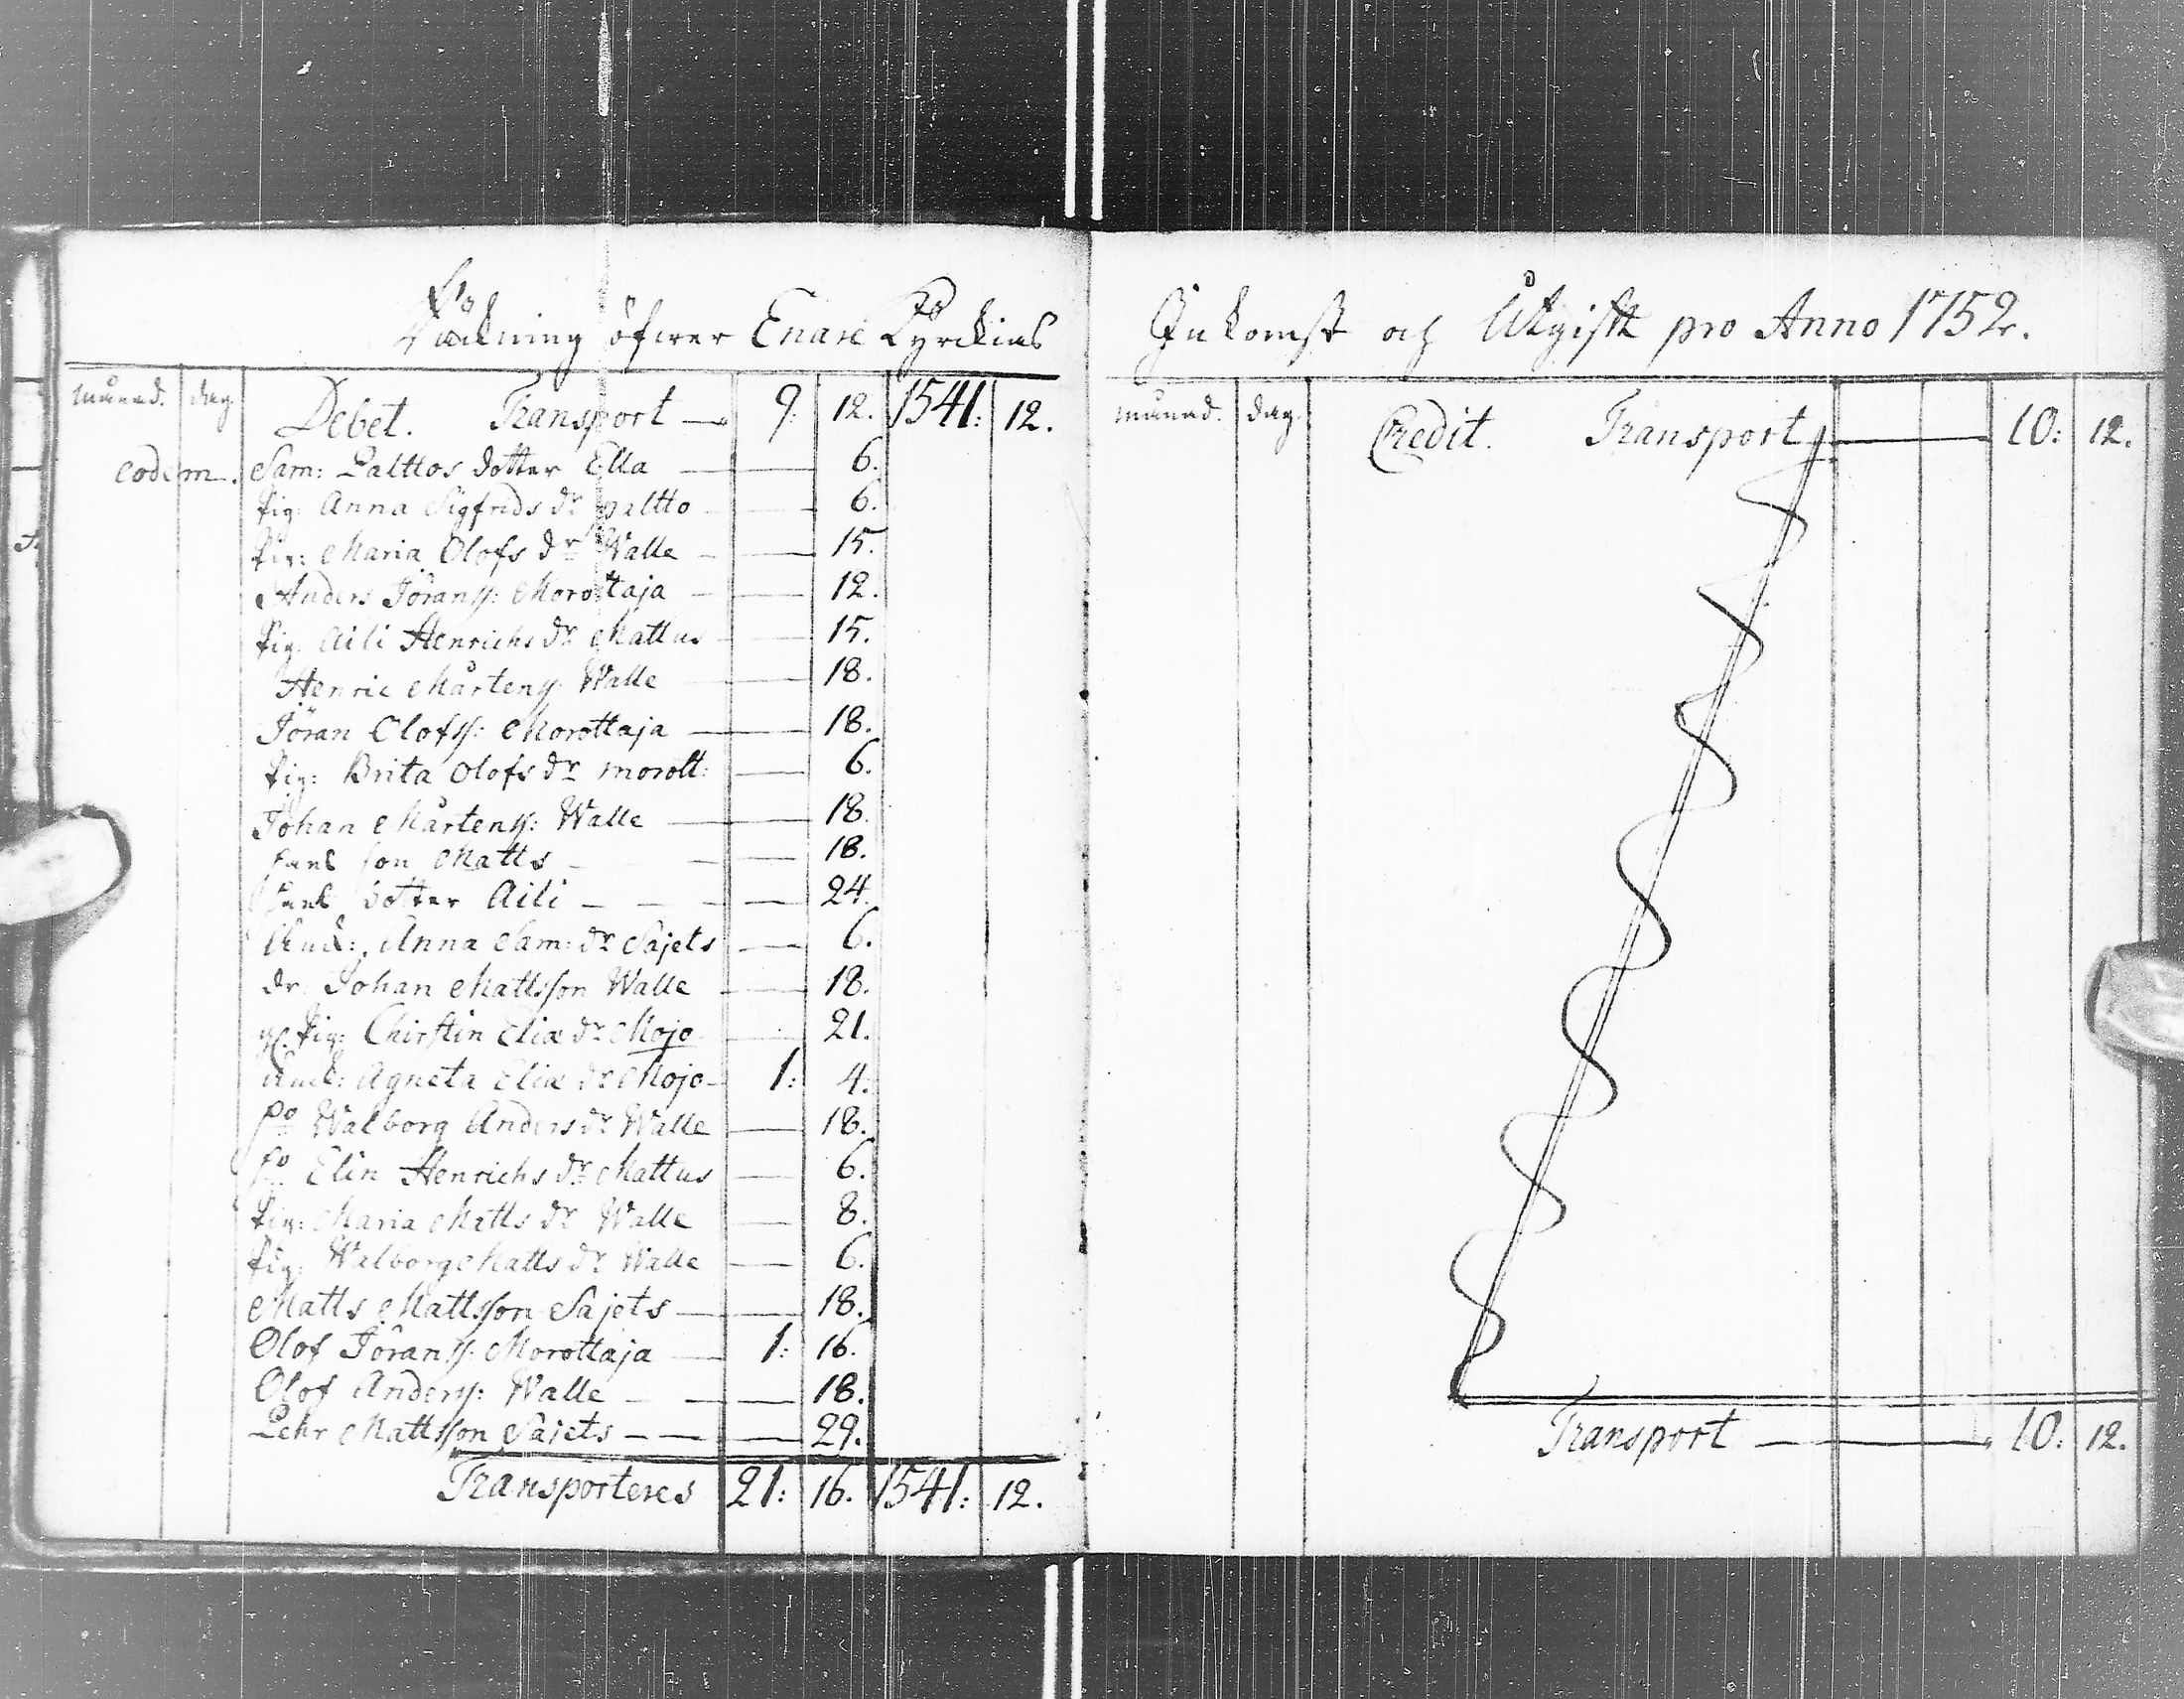 Räkning öfwer Enare Kyrckias
månad. dag. Debet. Transport — 9: 12. 1541: 12.
eodem. Sam: Palttos dotter Ella — 6.
Pig: Anna Sigfrids dr paltto — 6.
Pig: Maria Olofs dr Walle — 15.
Anders Jöranss: Morottaja — 12.
Pig: Aili Henrichs dr Mattus — 15.
Henric Mårtenss: Walle — 18.
Jöran Olofss: Morottaja — 18.
Pig: Brita Olofs dr morott: — 6.
Johan Mårtenss: Walle — 18.
Hans son Matts — 18.
Hans dotter Aili — 24.
Anna Sam: dr Sajets — 6.
dr. Johan Mattsson Walle — 18.
Pig: Chirstin Eliæ dr Mojo — 21.
Agneta Eliæ dr Mojo — 1: 4.
Walborg Anders dr Walle — 18.
Elin Henrichs dr Mattus — 6.
Pig: Maria Matts dr Walle — 8.
Pig: Walborg Matts dr Walle — 6.
Matts Mattsson Sajets — 18.
Olof Jöranss: Morottaja — 1: 16.
Olof Anderss: Walle — 18.
Pehr Mattsson Sajets — 29.
Transporteres 21: 16. 1541: 12.
Inkomst och Utgift pro Anno 1752.
månad. dag. Credit. Transport — 10: 12.
Transport — 10: 12.